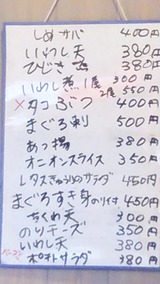 しめサバ 400円
いわし天 380円
ひじき 380円
いわし煮 1尾 300円
2尾 550円
×タコぶつ 400円
まぐろ刺 500円
あつ揚 380円
オニオンスライス 350円
レタスきゅうりのサラダ 450円
まぐろすき身のり付 450円
ちくわ天 300円
のりチーズ 350円
いわし天 380円
ポテトサラダ 380円